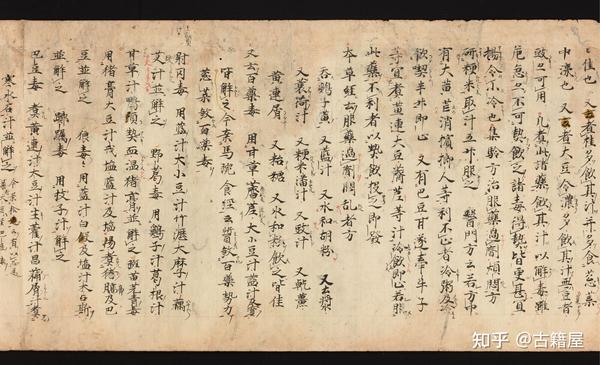 佳也 又云煮桂多飲其汁并多食葱葉
中涕也 又云煮大豆令濃多飲其汁無豆者
豉亦可用 凡煮此諸藥飲其汁以解毒雖
危急亦不可熱飲之諸毒得熱皆更甚宜
揚令小冷也 集驗方治服藥過劑煩悶方
研粳米取汁五升服之 醫門方云若方中
有大黄芒消人等利不止者冷粥及冷
飲喫半升即止 又有巴豆甘遂牽牛子
等宜煮黄連大豆薺苨等汁冷飲即止若服
此藥不利者以熱飲投之即發
本草經云服藥過劑悶乱者方
吞鶏子黄 又藍汁 又水和胡粉 又土漿
又蘘荷汁 又粳米潘汁 又豉汁 又乾薑
黄連屑 又粘糖 又水和葛粉飲之皆佳
又云百藥毒 用甘草薺苨大小豆汁藍汁及實
皆解之今案馬琬食經云飲百藥勢力
葱菜敵百藥毒
射罔毒 用藍汁大小豆汁竹瀝大麻子汁藕
艾汁並解之 野葛毒 用鶏子汁葛根汁
甘草汁鴨頭熱血温猪膏並解之 斑苗芫青毒
用猪膏大豆汁戎塩藍汁及塩湯煮猪膓及巴
豆並解之 狼毒毒 用藍汁白歛及塩汁木占斯
並解之 躑躅毒 用梔子汁解之
巴豆毒 煮黄連汁大豆汁生藿汁昌蒲屑汁煮
寒水石汁並解之
知乎 @古籍屋